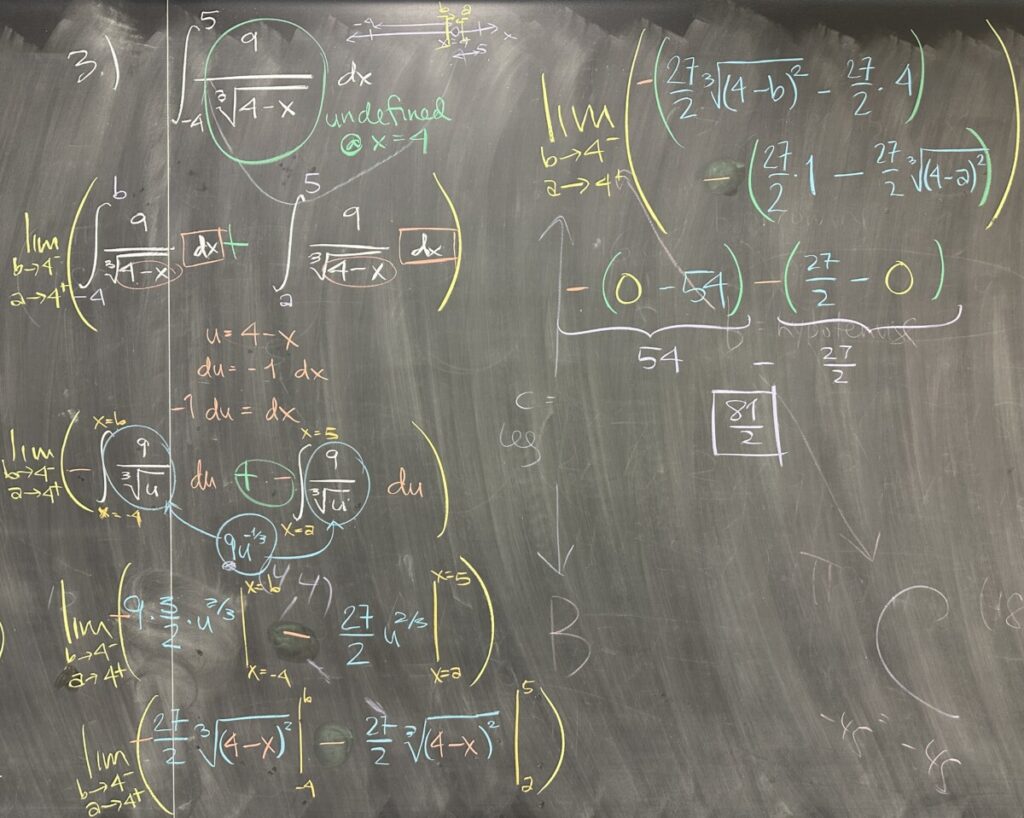 3.) ∫_{-4}^{5} 9/∛(4-x) dx
undefined
@ x=4
-4 b a 5 x
x=4
lim b→4⁻ a→4⁺ ( ∫_{-4}^{b} 9/∛(4-x) dx + ∫_{a}^{5} 9/∛(4-x) dx )
u = 4-x
du = -1 dx
-1 du = dx
lim b→4⁻ a→4⁺ ( - ∫_{x=-4}^{x=b} 9/∛u du + - ∫_{x=a}^{x=5} 9/∛u du )
9u^{-1/3}
lim b→4⁻ a→4⁺ ( - 9·3/2·u^{2/3} |_{x=-4}^{x=b} - 27/2 u^{2/3} |_{x=a}^{x=5} )
lim b→4⁻ a→4⁺ ( - 27/2 ∛(4-x)² |_{-4}^{b} - 27/2 ∛(4-x)² |_{a}^{5} )
lim b→4⁻ a→4⁺ ( - ( 27/2 ∛(4-b)² - 27/2 · 4 )
- ( 27/2 · 1 - 27/2 ∛(4-a)² ) )
- ( 0 - 54 ) - ( 27/2 - 0 )
54 - 27/2
81/2
c =
leg
B
C